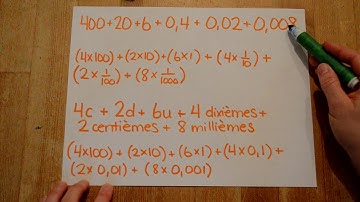 400+20+6+0,4+0,02+0,008
(4x100)+(2x10)+(6x1)+(4x1/10)+
(2x1/100)+(8x1/1000)
4c+2d+6u+4 dixièmes+
2 centièmes+8 millièmes
(4x100)+(2x10)+(6x1)+(4x0,1)+
(2x0,01)+(8x0,001)